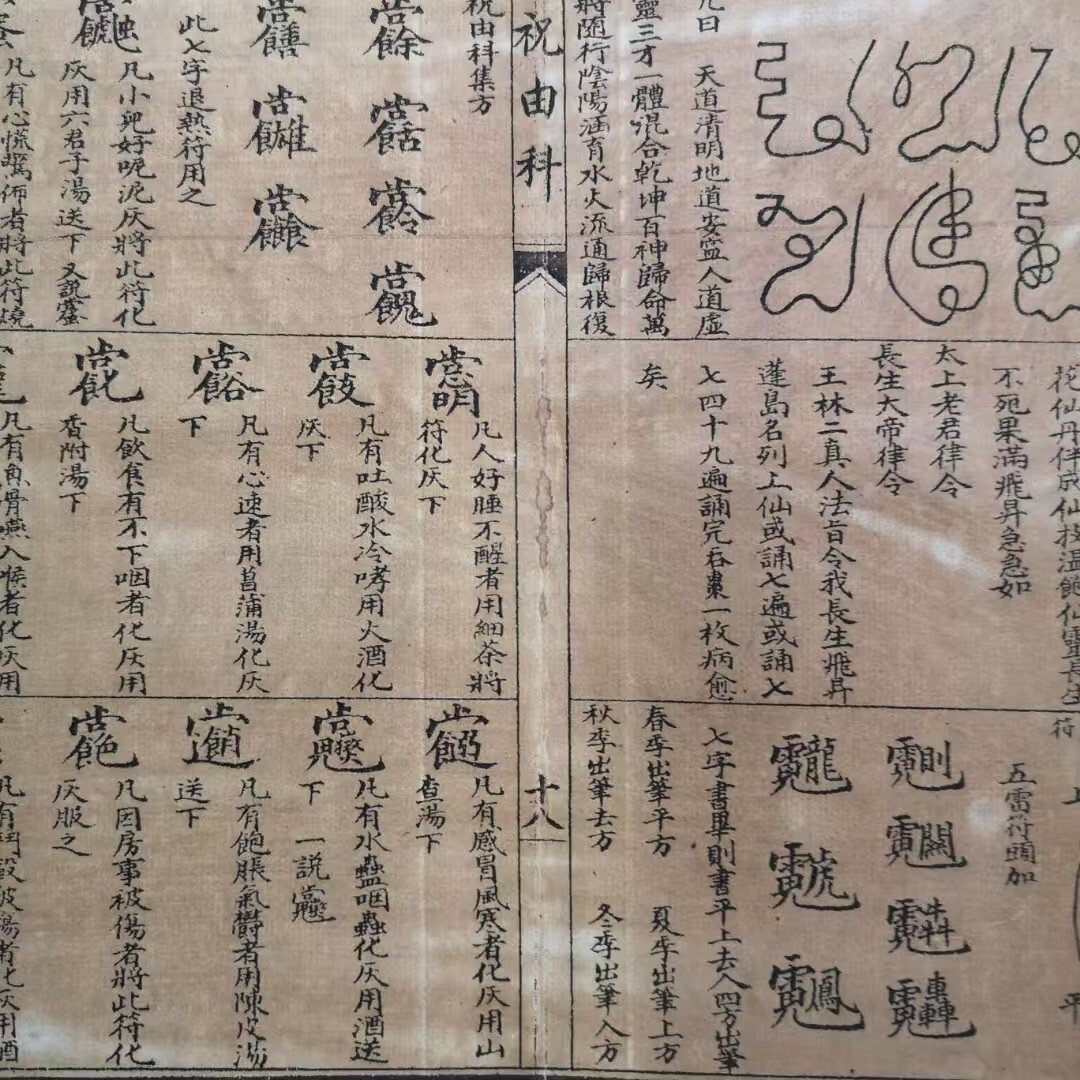 九日　天道清明地道安寧人道虛
靈三才一體混合乾坤百神歸命萬
將隨行陰陽涵育水火流通歸根復
花仙丹伴成仙技溫飽仙靈長生
不死果滿飛昇急急如
太上老君律令
長生大帝律令
王林二真人法旨令我長生飛昇
蓬島名列上仙或誦七遍或誦七
七四十九遍誦完吞棗一枚病愈
矣
符
上
平
五雷符頭加
七字書畢則書平上去入四方出筆
春季出筆平方　夏季出筆上方
秋季出筆去方　冬季出筆入方
祝由科
十八
祝由科集方
此七字退熱符用之
凡小兒好呢泥灰將此符化
灰用六君子湯送下 又說
凡有心慌驚怖者將此符燒
凡人好睡不醒者用細茶將
符化灰下
凡有吐酸水冷哮用火酒化
灰下
凡有心速者用菖蒲湯化灰
下
凡飲食有不下咽者化灰用
香附湯下
凡有魚骨嚥入喉者化灰用
凡有感冒風寒者化灰用山
查湯下
凡有水蠱咽蟲化灰用酒送
下　一說
凡有飽脹氣欝者用陳皮湯
送下
凡因房事被傷者將此符化
灰服之
凡有鬥毆被傷者化灰用酒